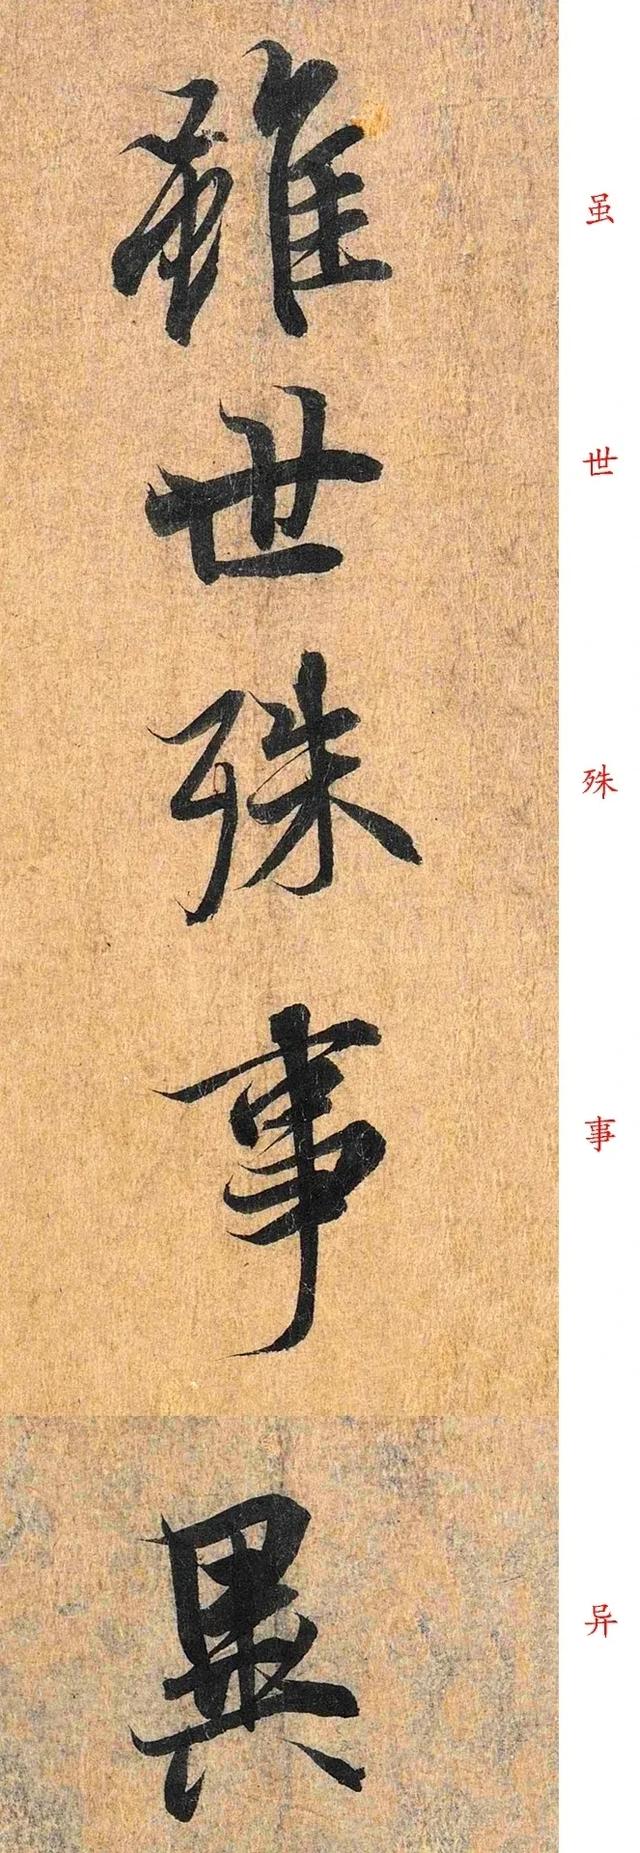 雖世殊事異
虽世殊事异